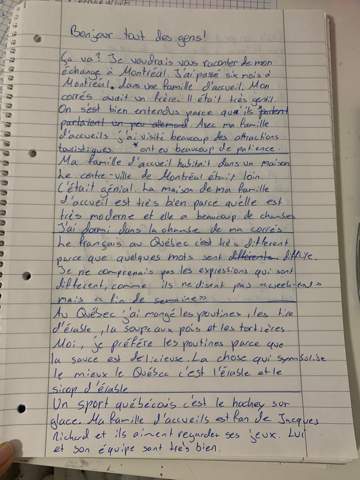 Bonjour tout des gens!
Ça va? Je voudrais vous raconter de mon
échange à Montréal. J'ai passé six mois à
Montréal, dans une famille d'accueil. Mon
corrés avait un frère. Il était très gentil
On s'est bien entendus parce qu'ils
parlaient un peu allemand. Avec ma famille
d'accueils j'ai visité beaucoup des attractions
touristiques * ont eu beaucoup de patience
Ma famille d'accueil habitait dans un maison
Le centre-ville de Montréal était loin
C'était génial. La maison de ma famille
d'accueil est très bien parce qu'elle est
très moderne et elle a beaucoup de chambres
J'ai dormi dans la chambre de ma corrés
Le français au Québec c'est très différent
parce que quelques mots sont différents
Je ne comprenais pas les expressions qui sont
différent, comme ils ne disent pas «week-end»
mais «la fin de semaine»
Au Québec j'ai mangé les poutines, les tire
d'érable, la soupe aux pois et les tortières
Moi, je préfère les poutines parce que
la sauce est delicieuse. La chose qui symbolise
le mieux le Québec c'est l'érable et le
sirop d'érable
Un sport québécois c'est le hockey sur
glace. Ma famille d'accueils est fan de Jacques
Richard et ils aiment regarder ses jeux. Lui
et son équipe sont très bien.